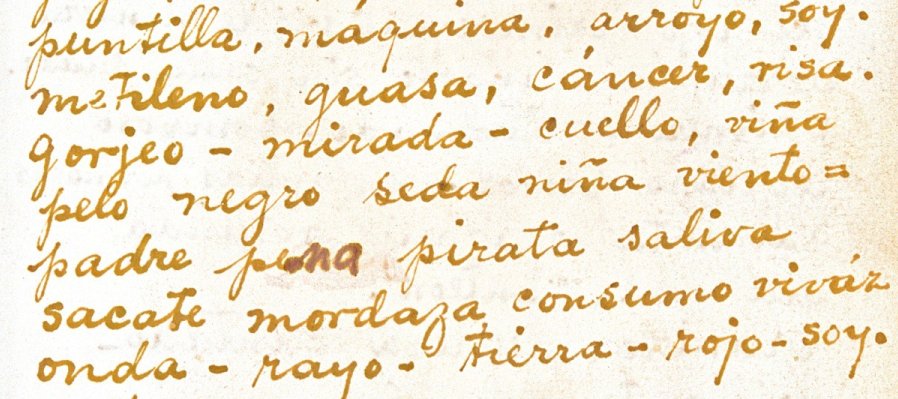 puntilla, máquina, arroyo, soy.
metileno, guasa, cáncer, risa.
gorjeo - mirada - cuello, viña
pelo negro seda niña viento =
padre pena pirata saliva
sacate mordaza consumo viváz
onda - rayo - tierra - rojo - soy.